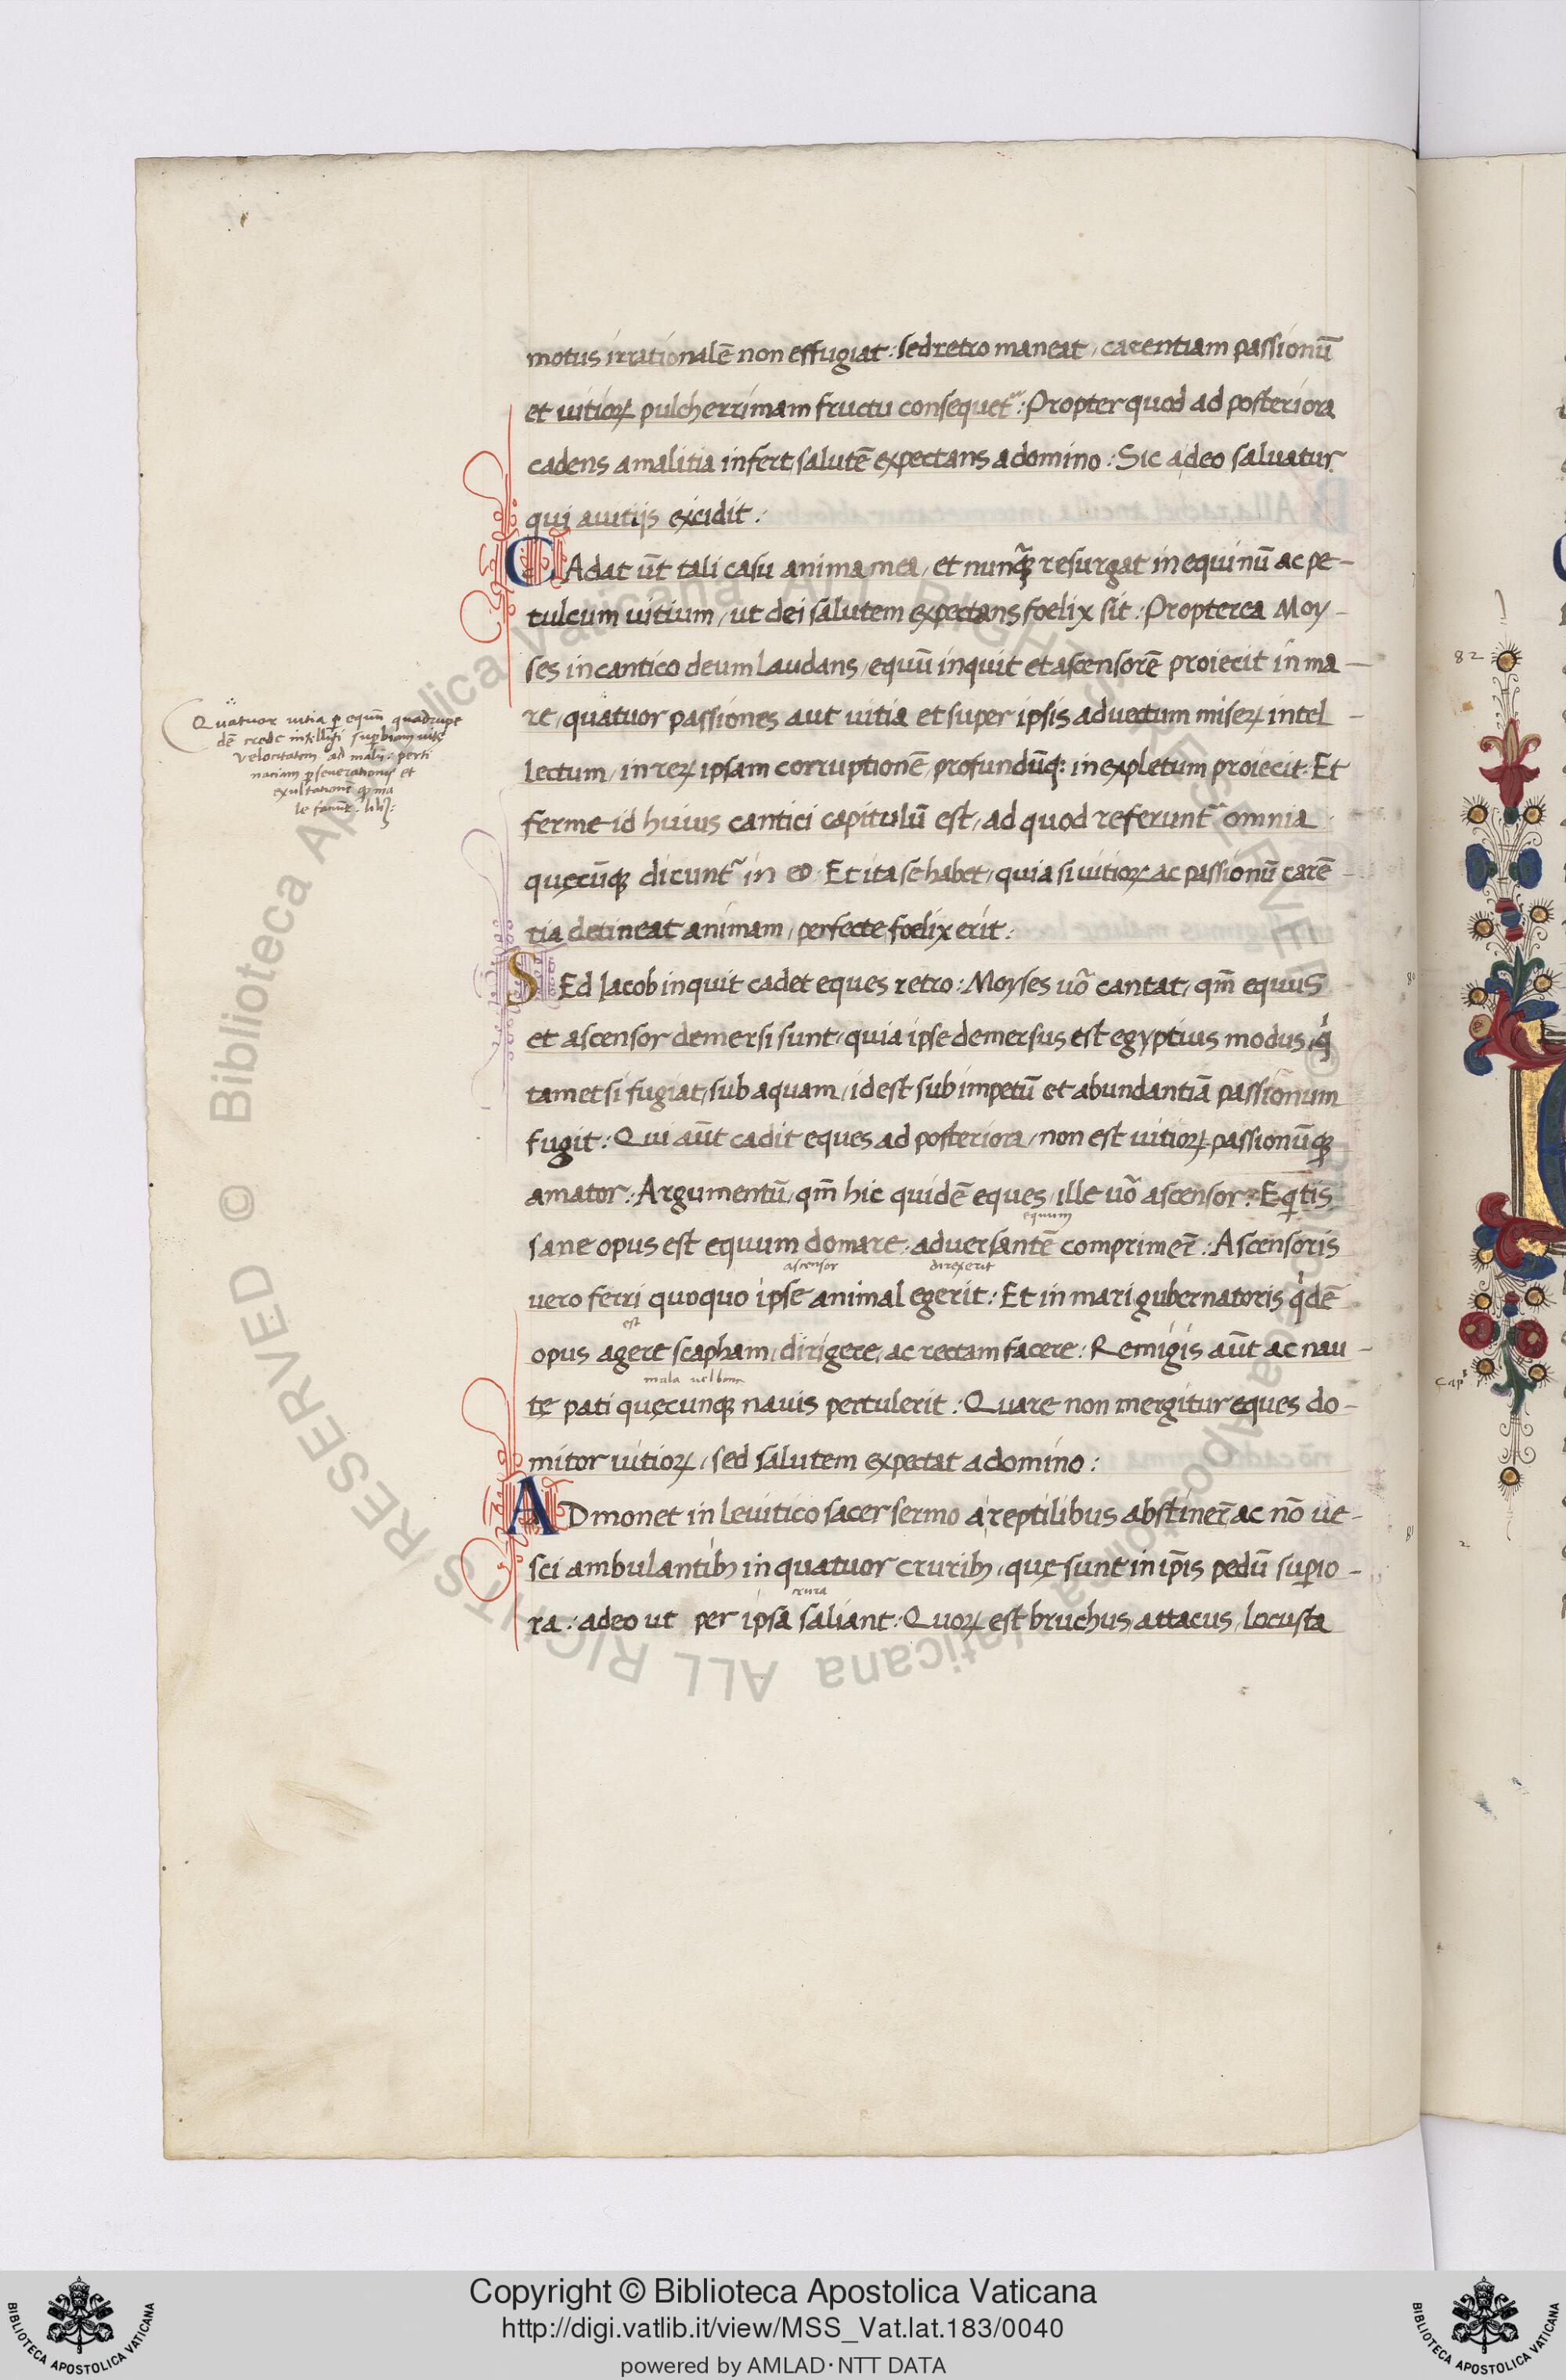 motus irrationalē non effugiat: sed retro maneat, carentiam passionū
et uitioꝝ pulcherrimam fructu consequet᷑: Propter quod ad posteriora
cadens a malitia infert, salutē expectans a domino: Sic a deo saluatur
qui a uitijs excidit:
CAdat aūt tali casu anima mea, et nunq̄ꝫ resurgat in equinū ac pe-
tulcum uitium, ut dei salutem expectans foelix sit: Propterea Moy-
ses in cantico deum laudans, equū inquit et ascensorē proiecit in ma-
re, quatuor passiones aut uitia et super ipsis aduectum miseꝝ intel-
lectum, in reꝝ ipsam corruptionē, profundūq: inexpletum proiecit: Et
ferme id huius cantici capitulū est, ad quod referunt᷑ omnia
quęcūqꝫ dicunt᷑ in eo. Et ita se habet, quia si uitioꝝ ac passionū carē-
tia detineat animam, perfecte foelix erit:
SEd Iacob inquit cadet eques retro: Moyses uō cantat, qm̄ equus
et ascensor demersi sunt, quia ipse demersus est egyptius modus, qͥ
tametsi fugiat, sub aquam, idest sub impetū et abundantiā passionum
fugit: Qui aūt cadit eques ad posteriora, non est uitioꝝ passionūqꝫ
amator: Argumentū, qm̄ hic quidē eques, ille uō ascensor: Eqͥtis
equum
sane opus est equum domare, aduersantē comprimer̄: Ascensoris
ascensor direxerit
uero ferri quoquo ipse animal egerit: Et in mari gubernatoris qͥdē
est
opus agere scapham, dirigere, ac rectam facere: Remigis aūt ac nau-
mala uel bona
tę pati quęcunqꝫ nauis pertulerit: Quare non mergitur eques do-
mitor uitioꝝ, sed salutem expectat a domino:
ADmonet in leuitico sacer sermo a reptilibus abstiner̄, ac nō ue-
sci ambulantibꝫ in quatuor cruribꝫ, quę sunt in ip̄is pedū suꝑio-
crura
ra: adeo ut per ipsa saliant: Quoꝝ est bruchus, attacus, locusta
Quatuor uitia ꝑ equū quadrupe
dē crede intelligi suꝑbiam uitę
velocitatem ad malū: perti
naciam ꝑseuerationis et
82
80
81
2
Copyright © Biblioteca Apostolica Vaticana
http://digi.vatlib.it/view/MSS_Vat.lat.183/0040
powered by AMLAD·NTT DATA
BIBLIOTECA APOSTOLICA VATICANA
BIBLIOTECA APOSTOLICA VATICANA
© Biblioteca Apostolica Vaticana ALL RIGHTS RESERVED © Biblioteca Apostolica Vaticana ALL RIGHTS RESERVED